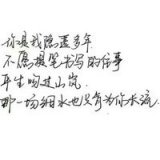 你是我隐匿多年
不愿提笔书写的往事
平生吻过山岚
那一场细水也只肯为你长流